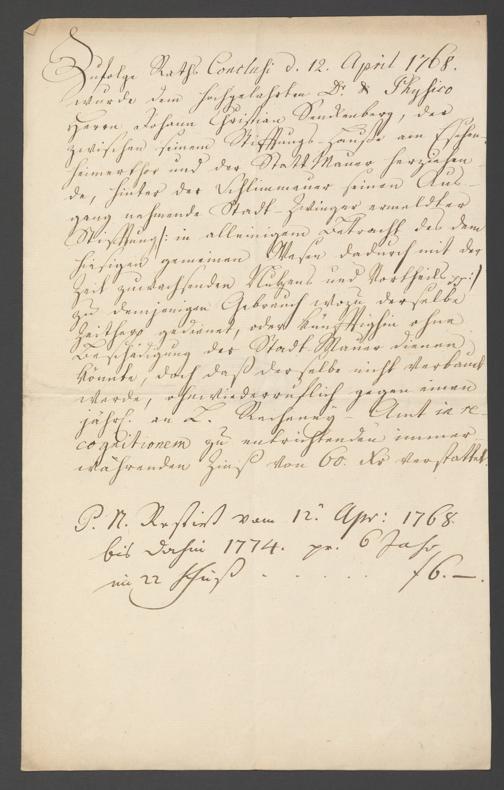 Zufolge Raths Conclusi d. 12. April 1768.
wurde dem hochgelahrten Dr. & Physico
Herrn Johann Christian Senckenberg, der
zwischen seinem Stifftungs-Hauße am Eschen-
heimerthor und der Statt Mauer herziehen-
de, hinter der Schlimmauer seinen Aus-
gang nehmende Stadt-Zwinger ermeldter
Stifftung /: in alleinigem Betracht des dem
hiesigen gemeinen Wesen dadurch mit der
Zeit zuwachsenden Nutzens und Vortheils pp :/
zu demjenigen Gebrauch wozu derselbe
zeithero gedienet, oder künfftighin ohne
Beschädigung der Stadt-Mauer dienen
könnte, doch daß derselbe nicht verbaut
werde, ohnwiederruflich gegen einen
jährl. an L. Rechenney-Amt in re-
cognitionem zu entrichtenden immer
währenden Zinß von 60. Xr verstattet.
P. N. Restirt vom 12n Apr: 1768.
bis dahin 1774. pr. 6 Jahr
im 22 fluß . . . . . f 6. —.